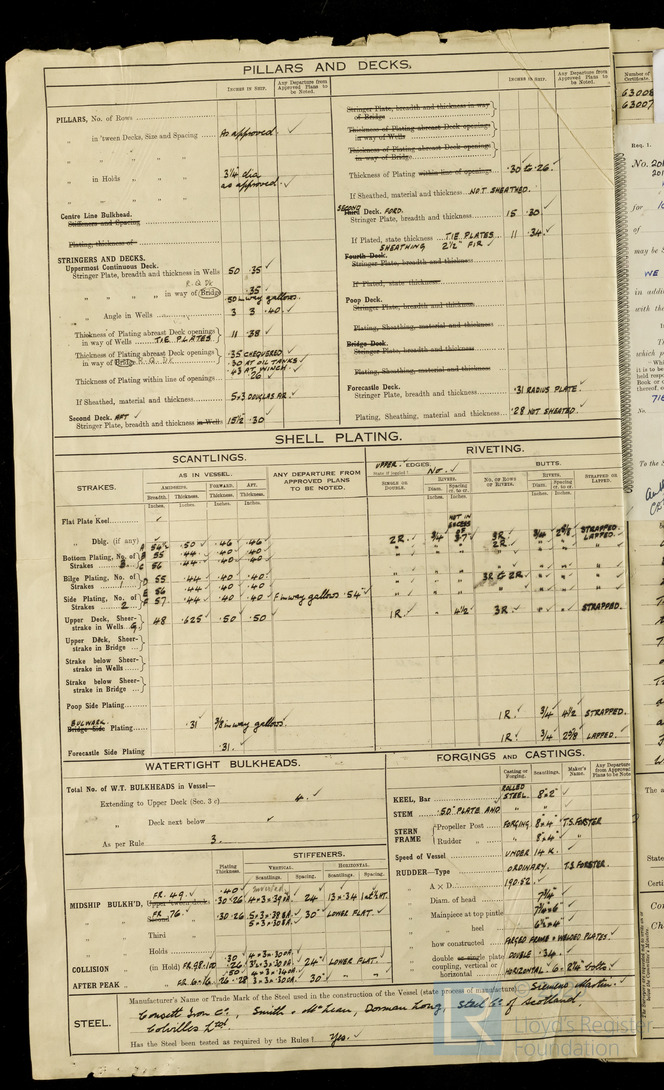 PILLARS AND DECKS.
INCHES IN SHIP.
Any Departure from Approved Plans to be Noted.
PILLARS, No. of Rows
„ in 'tween Decks, Size and Spacing As approved
„ in Holds 3¼ dia as approved
Centre Line Bulkhead.
Stiffeners and Spacing
Plating, thickness of
STRINGERS AND DECKS.
Uppermost Continuous Deck.
Stringer Plate, breadth and thickness in Wells 50 .35
R.Q. Dk
„ „ „ „ in way of Bridge .35
50 in way gallows.
„ Angle in Wells 3 3 .40
Thickness of Plating abreast Deck openings in way of Wells TIE PLATES 11 .38
Thickness of Plating abreast Deck openings in way of Bridge R.Q. Dk .35 CHEQUERED
.30 AT OIL TANKS
.43 AT WINCH
Thickness of Plating within line of openings .26
If Sheathed, material and thickness 5x3 DOUGLAS FIR.
Second Deck. AFT
Stringer Plate, breadth and thickness in Wells 15½ .30
INCHES IN SHIP.
Any Departure from Approved Plans to be Noted.
Stringer Plate, breadth and thickness in way of Bridge
Thickness of Plating abreast Deck openings in way of Wells
Thickness of Plating abreast Deck openings in way of Bridge
Thickness of Plating within line of openings .30 & .26
If Sheathed, material and thickness NOT SHEATHED.
SECOND
Third Deck. FORD.
Stringer Plate, breadth and thickness 15 .30
If Plated, state thickness TIE PLATES 11 .34
SHEATHING 2½" FIR
Fourth Deck.
Stringer Plate, breadth and thickness
If Plated, state thickness
Poop Deck.
Stringer Plate, breadth and thickness
Plating, Sheathing, material and thickness
Bridge Deck.
Stringer Plate, breadth and thickness
Plating, Sheathing, material and thickness
Forecastle Deck.
Stringer Plate, breadth and thickness .31 RADIUS PLATE
Plating, Sheathing, material and thickness .28 NOT SHEATED.
SHELL PLATING.
SCANTLINGS.
RIVETING.
STRAKES.
AS IN VESSEL.
AMIDSHIPS. FORWARD. AFT.
Breadth. Thickness. Thickness. Thickness.
Inches. Inches. Inches. Inches.
ANY DEPARTURE FROM APPROVED PLANS TO BE NOTED.
UPPER EDGES. No.
SINGLE OR DOUBLE.
RIVETS.
Diam. Spacing cr. to cr.
Inches. Inches.
BUTTS.
NO. OF ROWS OF RIVETS.
RIVETS.
Diam. Spacing cr. to cr.
Inches. Inches.
STRAPPED OR LAPPED.
Flat Plate Keel
NOT IN EXCESS OF
„ Dblg. (if any)
A 54½ .50 .46 .46 2R. 3/4 3.7 3R 3/4 2⅝ STRAPPED.
2R LAPPED.
Bottom Plating, No. of Strakes 3. B 55 .44 .40 .40
C 56 .44 .40 .40
Bilge Plating, No. of Strakes 1 D 55 .44 .40 .40 3R & 2R
Side Plating, No. of Strakes 2 E 56 .44 .40 .40
F 57 .44 .40 .40 F in way gallows .54"
Upper Deck, Sheerstrake in Wells G 48 .625 .50 .50 1R. 4½ 3R STRAPPED.
Upper Deck, Sheerstrake in Bridge
Strake below Sheerstrake in Wells
Strake below Sheerstrake in Bridge
Poop Side Plating
BULWARK
Bridge Side Plating .31 3/8 in way gallows. 1R. 3/4 4½ STRAPPED.
Forecastle Side Plating .31. 1R. 3/4 2⅝ LAPPED.
WATERTIGHT BULKHEADS.
Total No. of W.T. BULKHEADS in Vessel—
Extending to Upper Deck (Sec. 3 c) 4.
„ Deck next below
As per Rule 3.
STIFFENERS.
Plating Thickness.
VERTICAL. HORIZONTAL.
Scantlings. Spacing. Scantlings. Spacing.
MIDSHIP BULK'D, FR. 49. .40 .30 .26 4x3x39BA. 24" 13x.34 1 at ½ HT.
Upper 'tween decks
„ FR. 76. .30 .26 5x3x38BA. 30" LOWER FLAT.
Second
5x3x30BA.
„ Third
„ Holds
COLLISION „ (in Hold) FR 98-100 .30 .26 4x3x30BA. 24" LOWER FLAT
AFTER PEAK „ FR. 6-16 .50 .26 .28 4x3x34BA 3x3x30A. 30"
FORGINGS AND CASTINGS.
Casting or Forging. Scantlings. Maker's Name. Any Departure from Approved Plans to be Noted
KEEL, Bar ROLLED STEEL. 8"x2"
STEM .50" PLATE AND „ „
STERN FRAME
Propeller Post FORGING. 8"x4" T.S. FORSTER
Rudder „ 8"x4" „
Speed of Vessel UNDER 14 K.
RUDDER—Type ORDINARY. T.S. FORSTER.
„ A x D 190.52.
„ Diam. of head 7¾"
„ Mainpiece at top pintle
„ heel
„ how constructed FORGED FRAME & WELDED PLATES.
„ double or single plate DOUBLE .34
„ coupling, vertical or horizontal HORIZONTAL 6 - 2¼" bolts.
STEEL.
Manufacturer's Name or Trade Mark of the Steel used in the construction of the Vessel (state process of manufacture). Siemens Martin.
Consett Iron Co, Smith & McLean, Dorman Long, Steel Co. of Scotland
Colvilles Ltd
Has the Steel been tested as required by the Rules? Yes.
© Lloyd's Register Foundation
LR
Number of Certificate.
63008
63007
Req. 1.
No. 201
for
of
may be
WE
in addi
with the
which p
To the
State
Certi